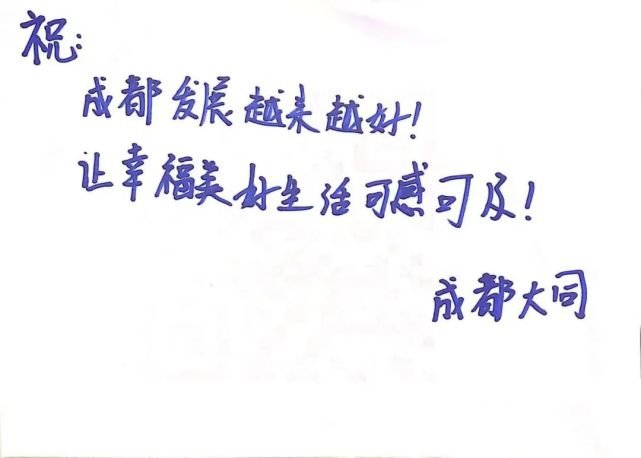 祝:
成都发展越来越好!
让幸福美好生活可感可及!
成都大同